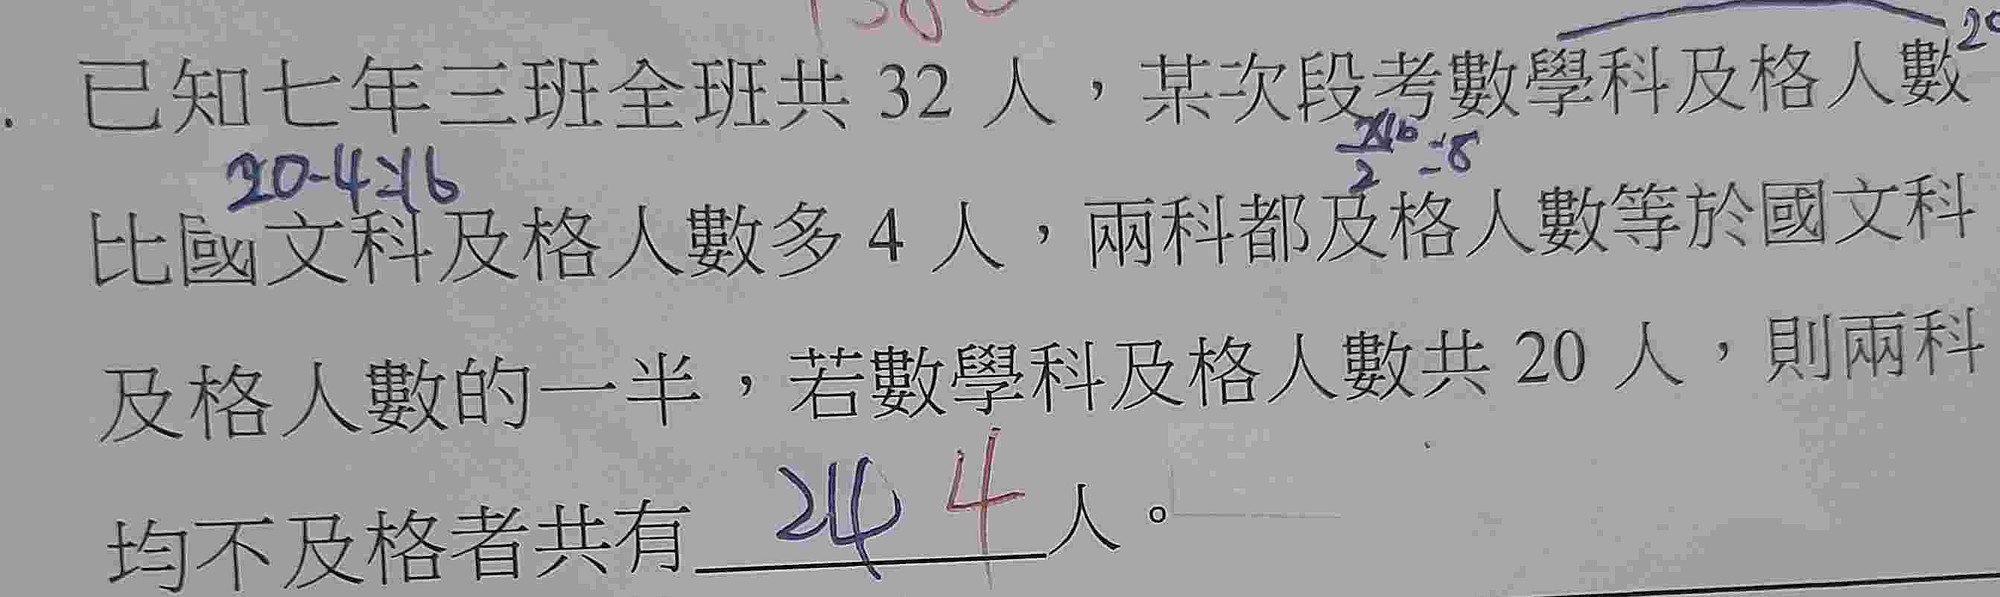 已知七年三班全班共 32 人，某次段考數學科及格人數
20
20-4=16
16/2=8
比國文科及格人數多 4 人，兩科都及格人數等於國文科
及格人數的一半，若數學科及格人數共 20 人，則兩科
均不及格者共有 24 4 人。